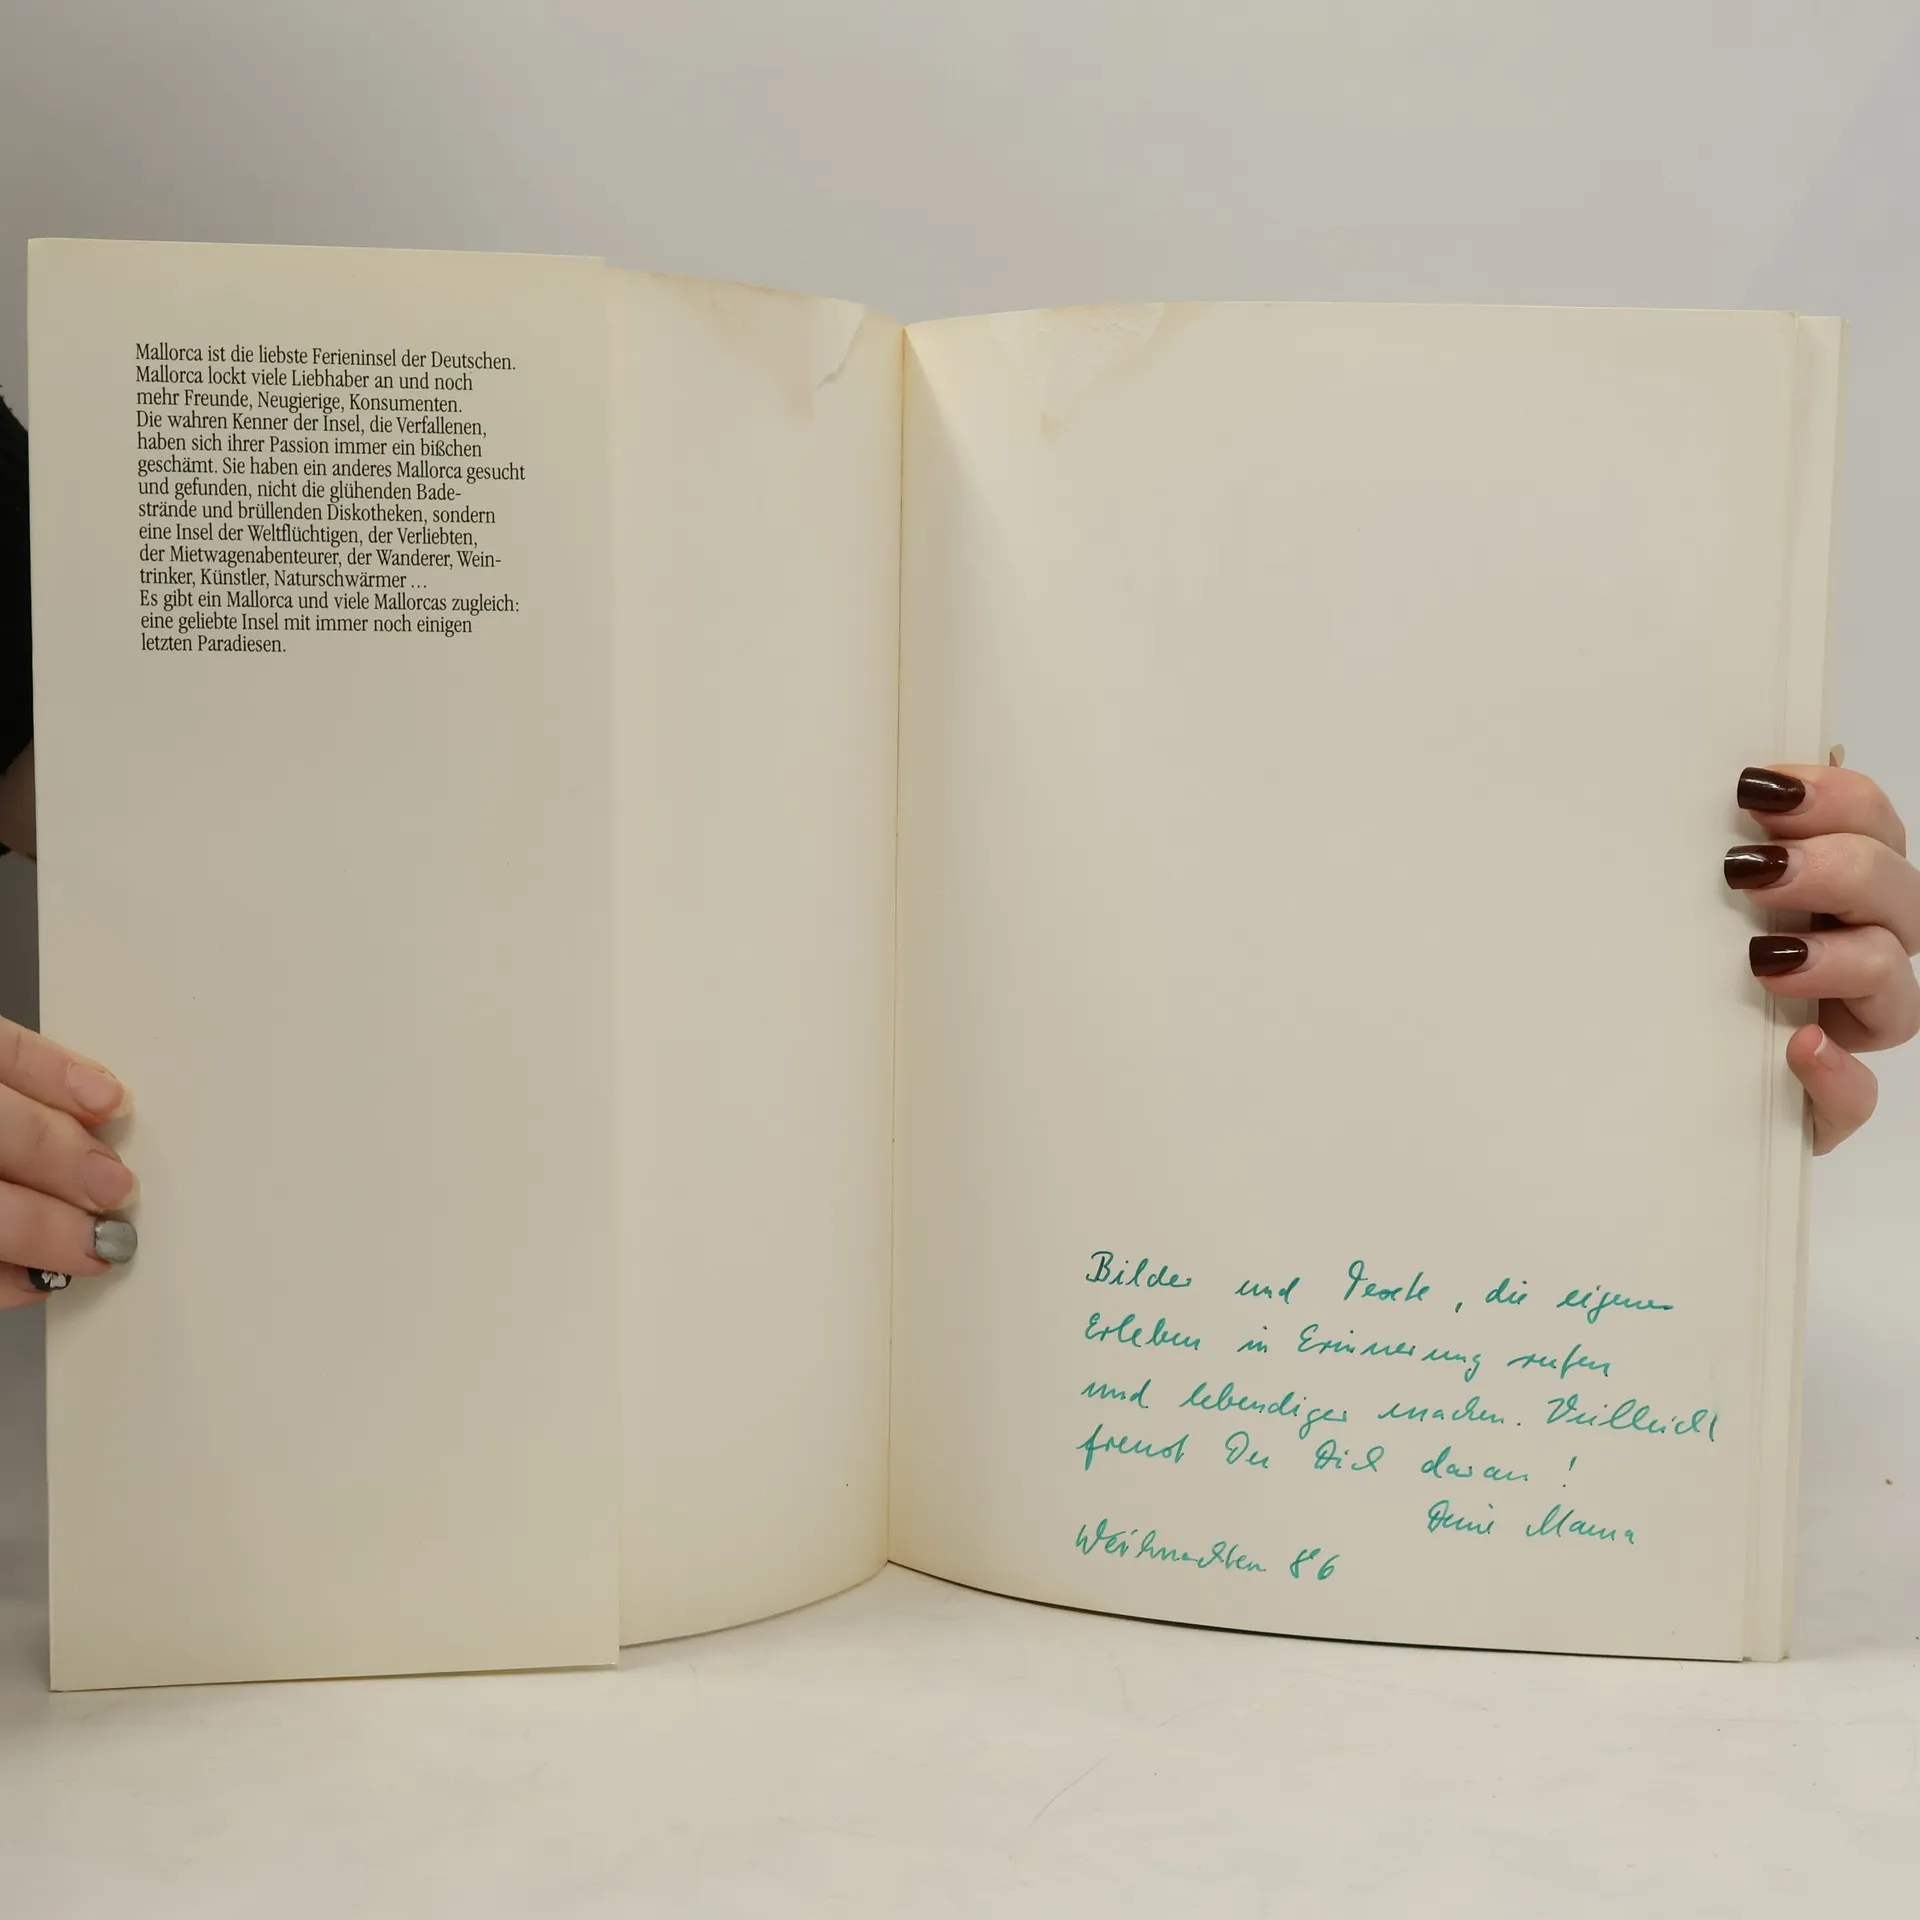 Mallorca ist die liebste Ferieninsel der Deutschen.
Mallorca lockt viele Liebhaber an und noch
mehr Freunde, Neugierige, Konsumenten.
Die wahren Kenner der Insel, die Verfallenen,
haben sich ihrer Passion immer ein bißchen
geschämt. Sie haben ein anderes Mallorca gesucht
und gefunden, nicht die glühenden Bade-
strände und brüllenden Diskotheken, sondern
eine Insel der Weltflüchtigen, der Verliebten,
der Mietwagenabenteurer, der Wanderer, Wein-
trinker, Künstler, Naturschwärmer ...
Es gibt ein Mallorca und viele Mallorcas zugleich:
eine geliebte Insel mit immer noch einigen
letzten Paradiesen.
Bilder und Texte, die eigenes
Erleben in Erinnerung rufen
und lebendiger machen. Vielleicht
freust Du Dich daran!
Deine Mama
Weihnachten 86